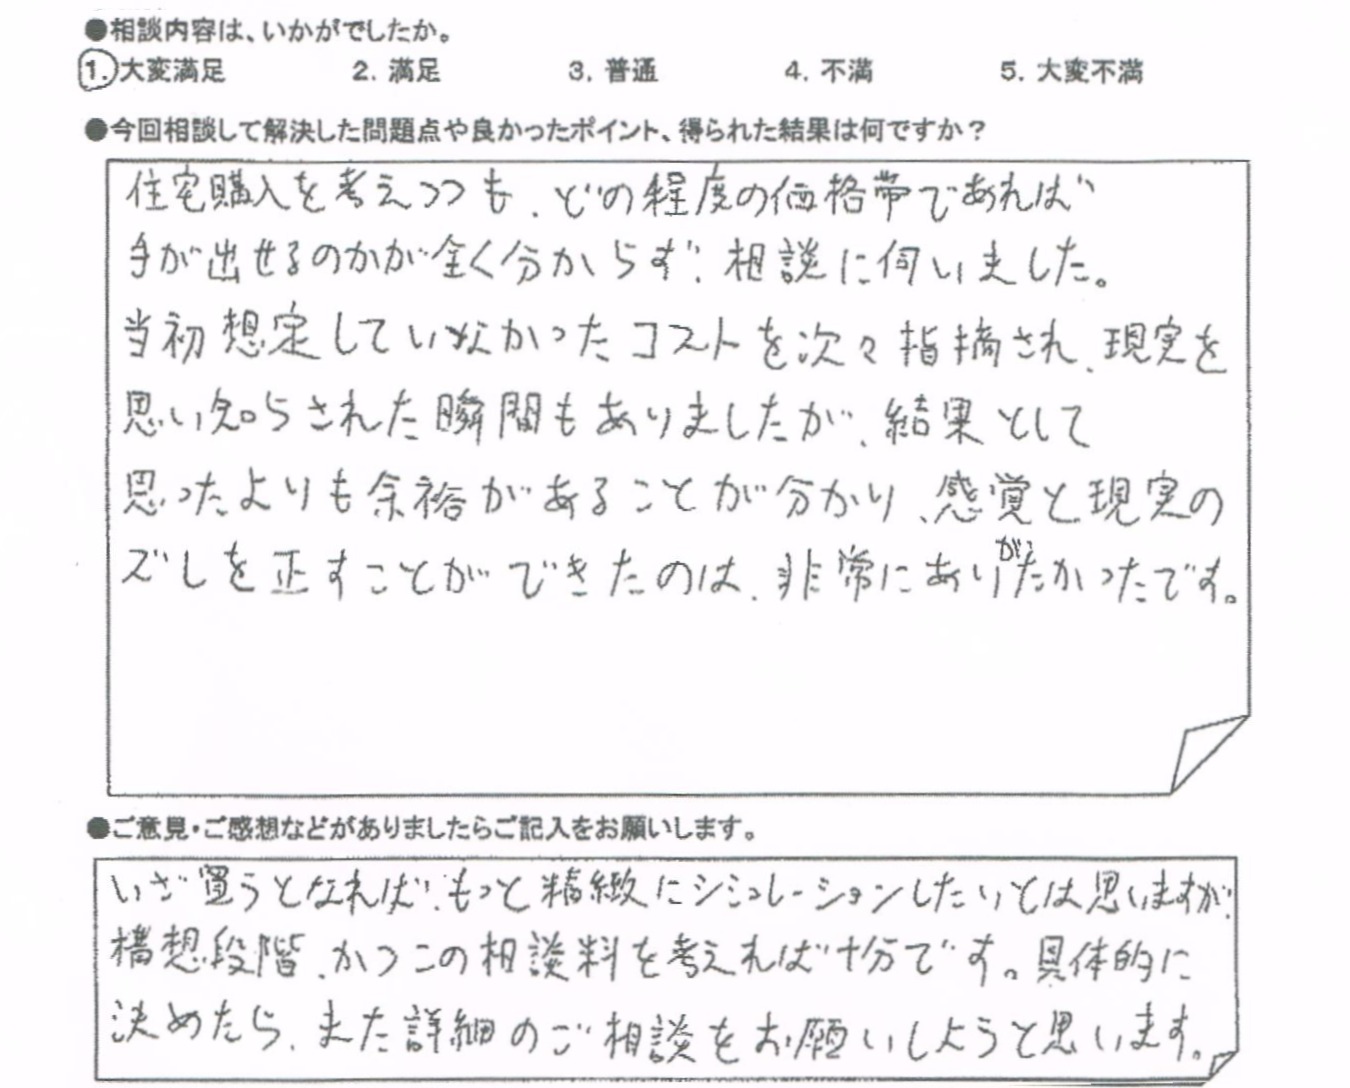 ●相談内容は、いかがでしたか。
1. 大変満足 2. 満足 3. 普通 4. 不満 5. 大変不満
●今回相談して解決した問題点や良かったポイント、得られた結果は何ですか？
住宅購入を考えつつも、どの程度の価格帯であれば
手が出せるのかが全く分からず、相談に伺いました。
当初想定していなかったコストを次々指摘され、現実を
思い知らされた瞬間もありましたが、結果として
思ったよりも余裕があることが分かり、感覚と現実の
ズレを正すことができたのは、非常にありがたかったです。
●ご意見・ご感想などがありましたらご記入をお願いします。
いざ買うとなれば、もっと精緻にシミュレーションしたいとは思いますが、
構想段階、かつこの相談料を考えれば十分です。具体的に
決めたら、また詳細のご相談をお願いしようと思います。